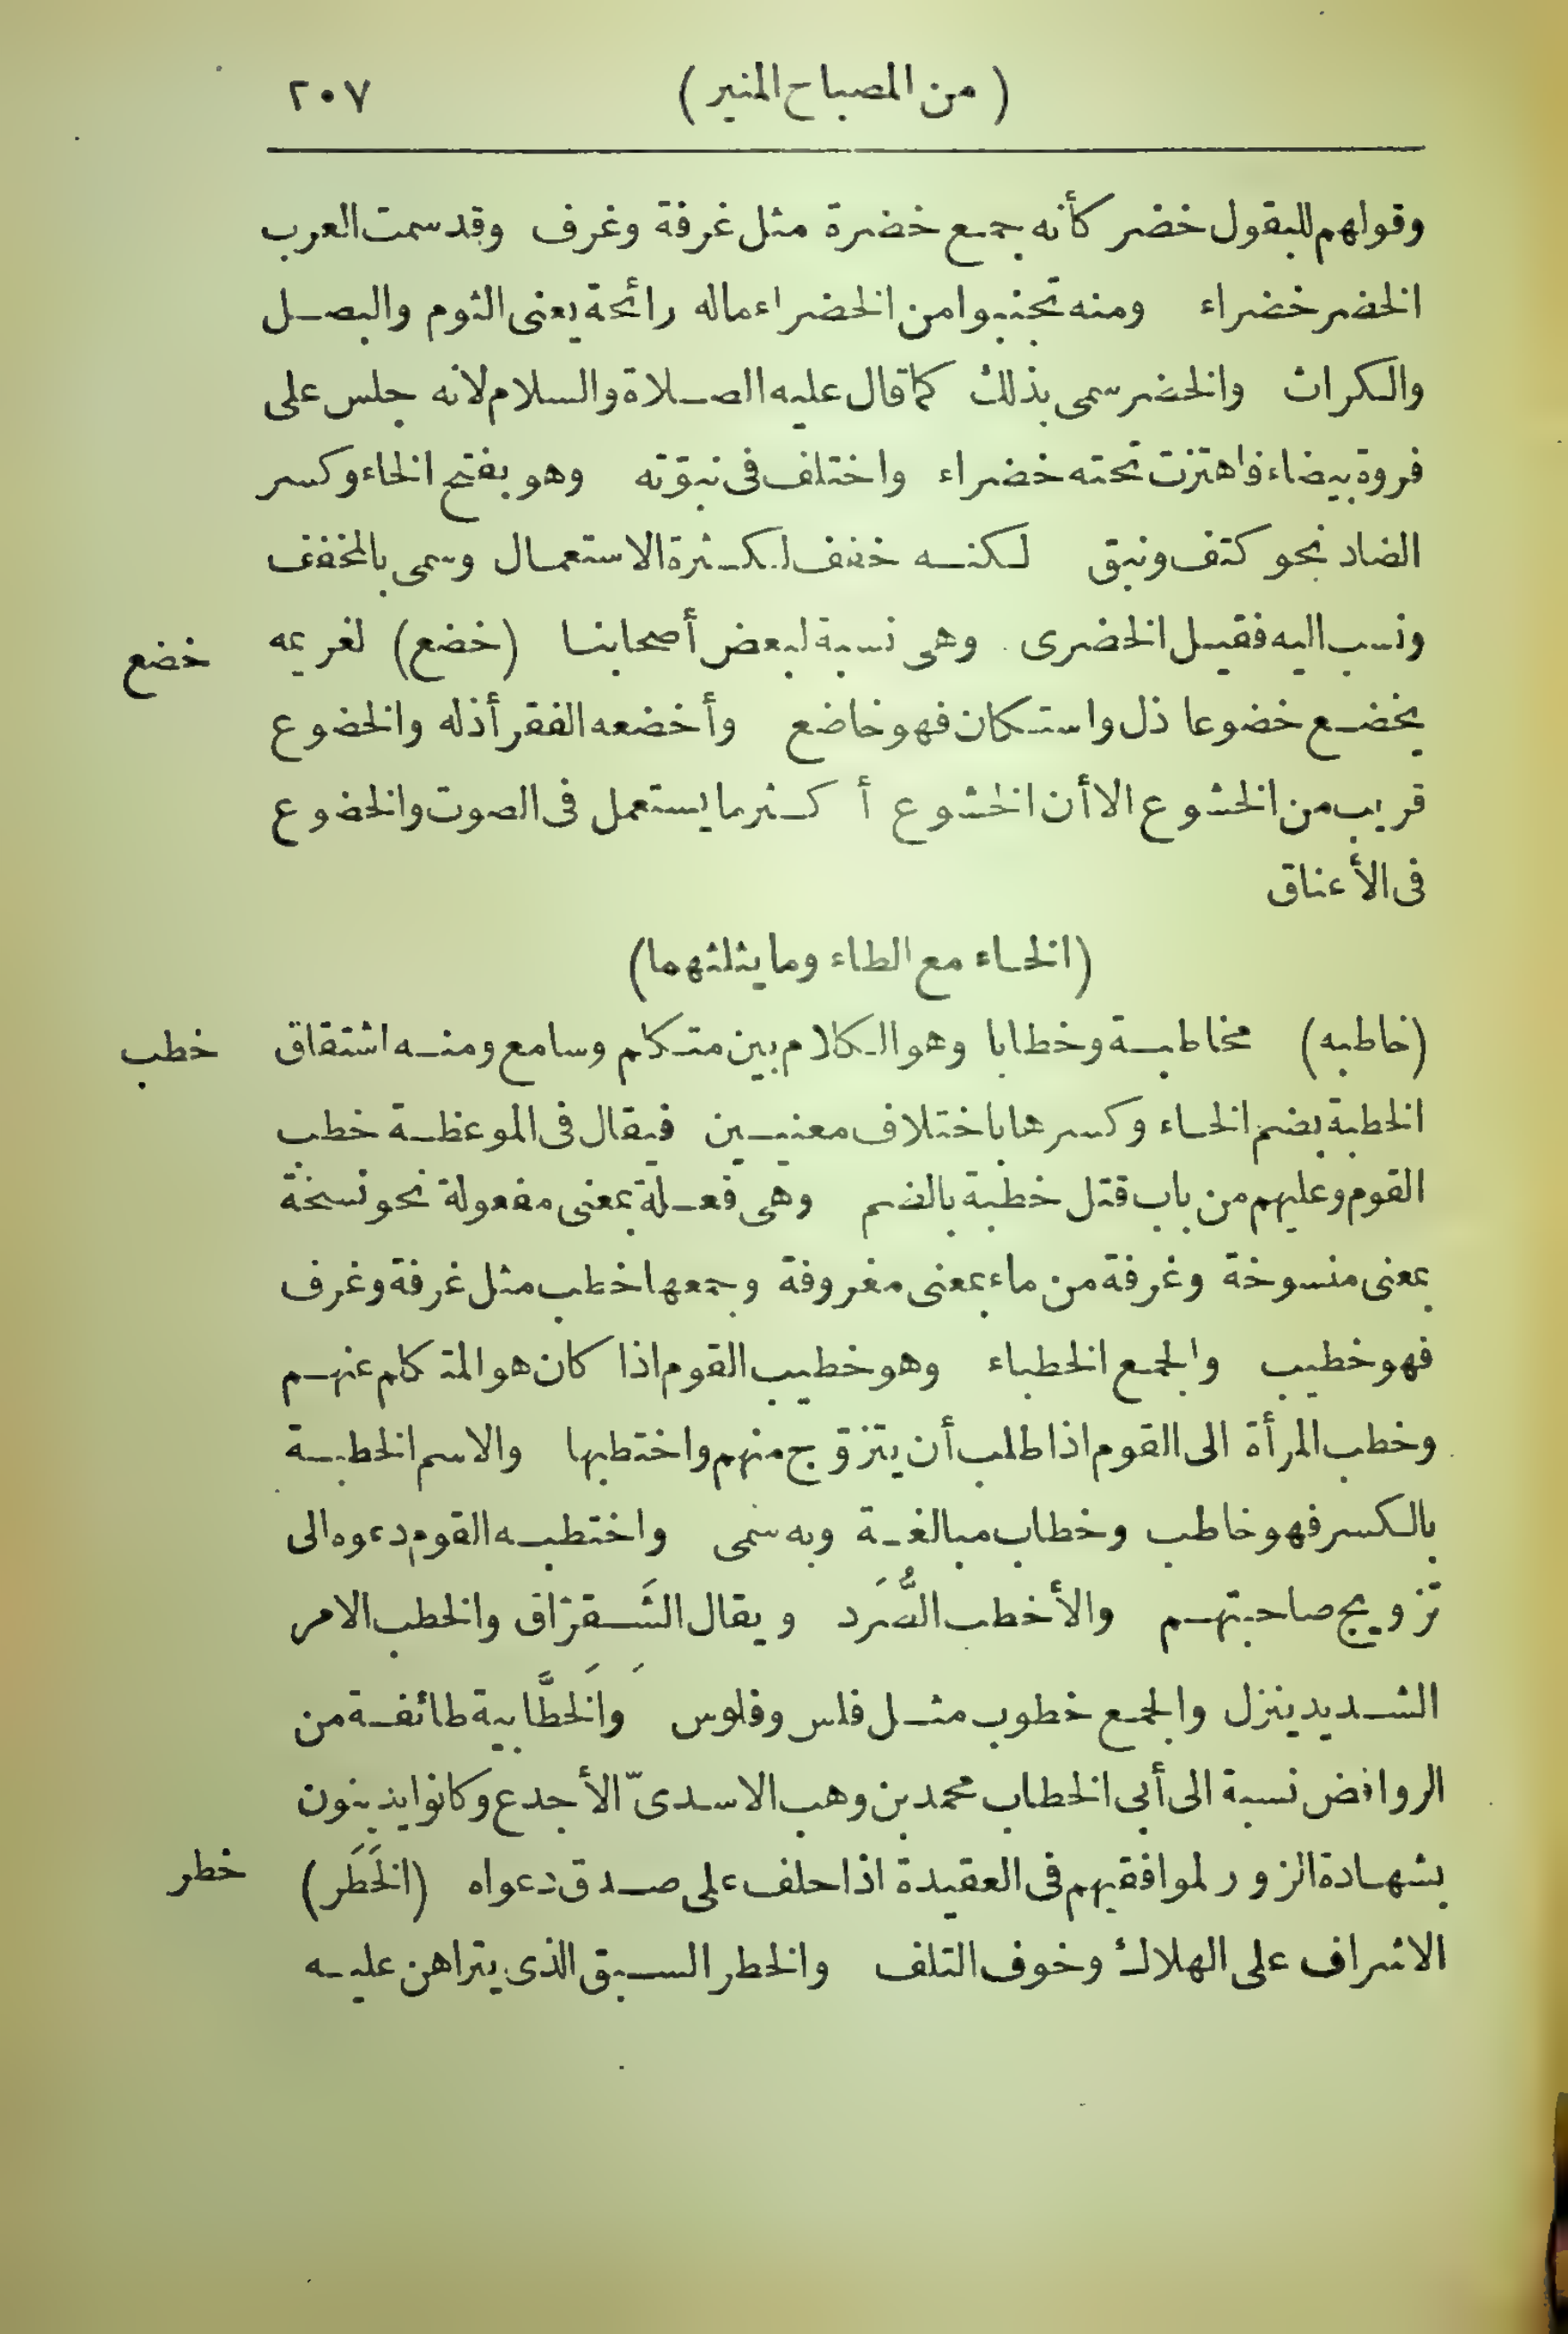 (من المصباح المنير) ٢٠٧
وقولهم للبقول خضر كأنه جمع خضرة مثل غرفة وغرف وقد سمت العرب
الخضر خضراء ومنه تجنبوا من الخضراء ماله رائحة يعنى الثوم والبصل
والكراث والخضر سمى بذلك كما قال عليه الصلاة والسلام لانه جلس على
فروة بيضاء فاهتزت تحته خضراء واختلف فى نبوّته وهو بفتح الخاء وكسر
الضاد نحو كتف ونبق لكنه خفف لكثرة الاستعمال وسمى بالمخفف
ونسب اليه فقيل الخضرى وهى نسبة لبعض أصحابنا (خضع) لغريمه خضع
يخضع خضوعا ذل واستكان فهو خاضع وأخضعه الفقر أذله والخضوع
قريب من الخشوع الا أن الخشوع أكثر ما يستعمل فى الصوت والخضوع
فى الأعناق
(الخاء مع الطاء وما يثلثهما)
(خاطبه) مخاطبة وخطابا وهو الكلام بين متكلم وسامع ومنه اشتقاق خطب
الخطبة بضم الخاء وكسرها باختلاف معنيين فيقال فى الموعظة خطب
القوم وعليهم من باب قتل خطبة بالضم وهى فعلة بمعنى مفعولة نحو نسخة
بمعنى منسوخة وغرفة من ماء بمعنى مغروفة وجمعها خطب مثل غرفة وغرف
فهو خطيب والجمع الخطباء وهو خطيب القوم اذا كان هو المتكلم عنهم
وخطب المرأة الى القوم اذا طلب أن يتزوّج منهم واختطبها والاسم الخطبة
بالكسر فهو خاطب وخطاب مبالغة وبه سمى واختطبه القوم دعوه الى
تزويج صاحبتهم والأخطب الصُّرَد ويقال الشَقرّاق والخطب الامر
الشديد ينزل والجمع خطوب مثل فلس وفلوس وَالخَطَّابية طائفة من
الروافض نسبة الى أبى الخطاب محمد بن وهب الاسدىّ الأجدع وكانوا يدينون
بشهادة الزور لموافقيهم فى العقيدة اذا حلف على صدق دعواه (الخَطَر) خطر
الاشراف على الهلاك وخوف التلف والخطر السبق الذى يتراهن عليه